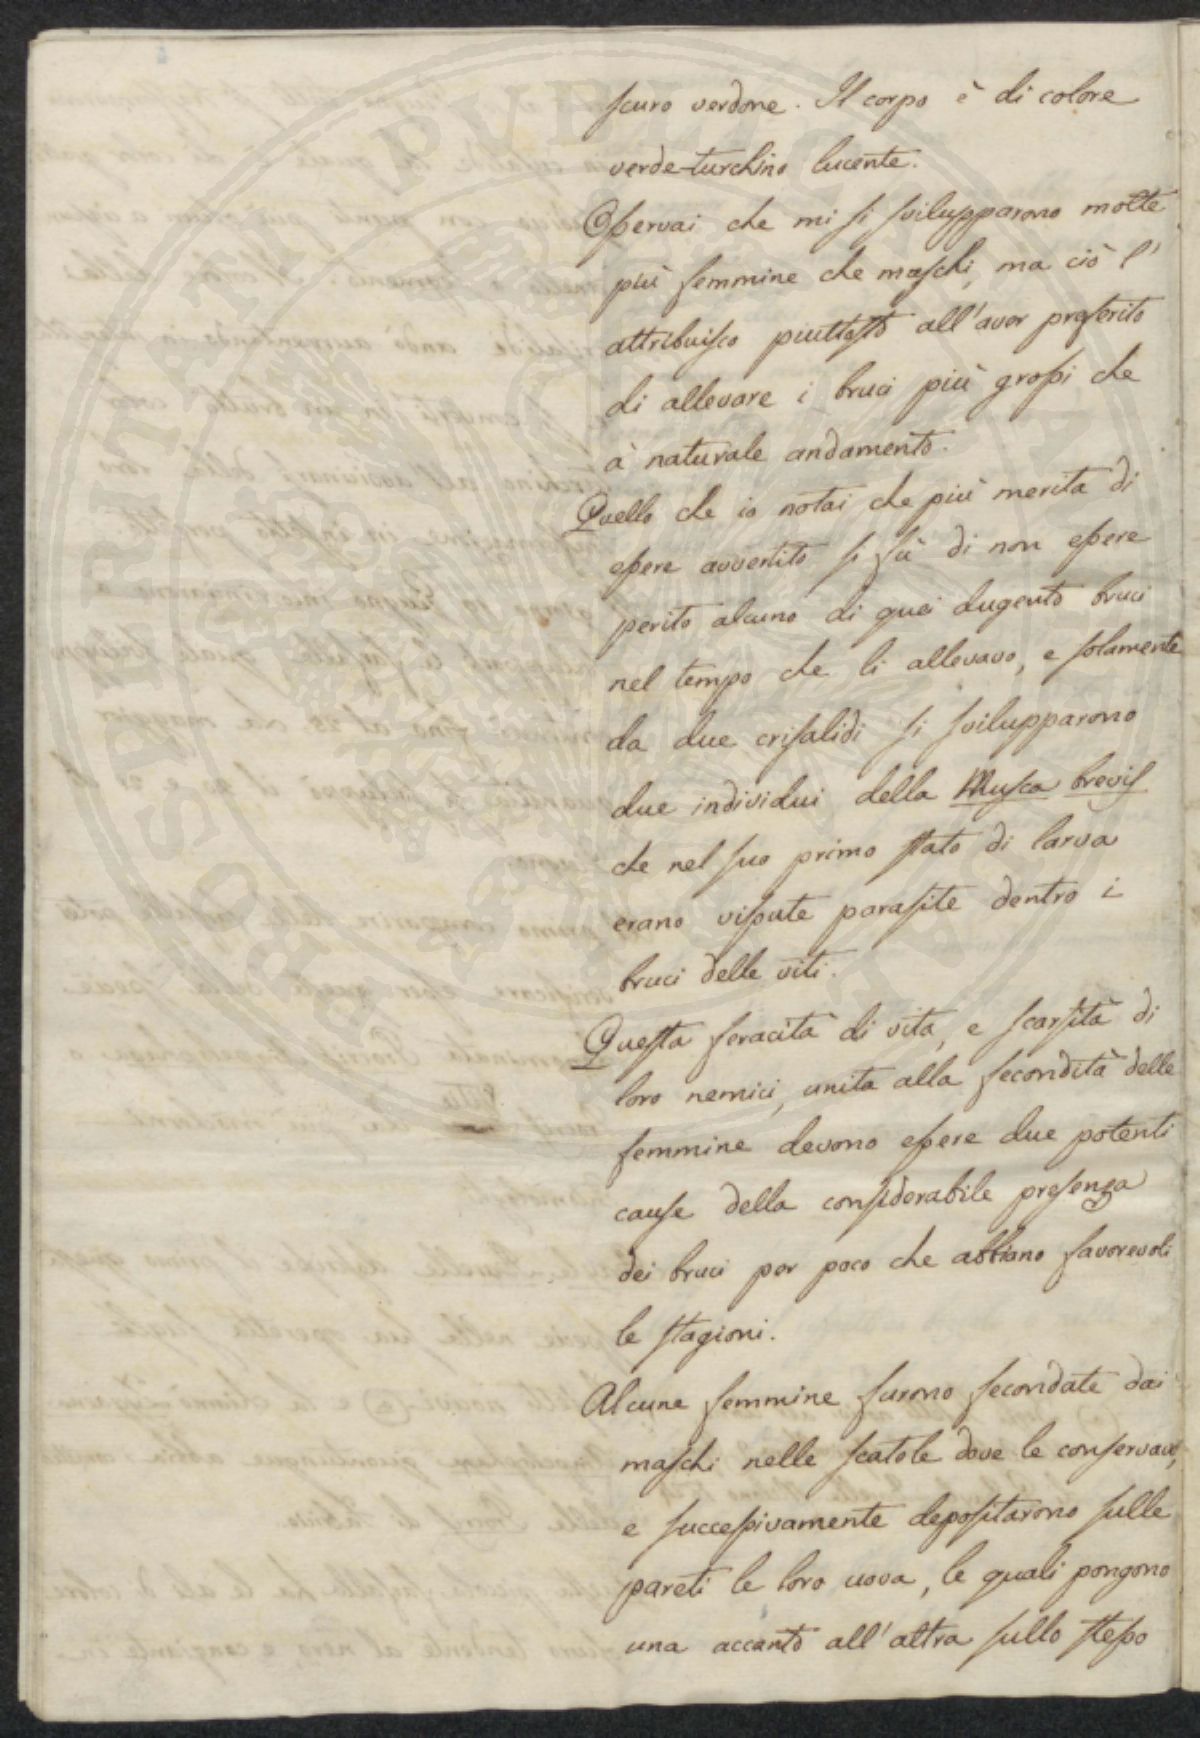 scuro verdone. Il corpo è di colore
verde-turchino lucente.
Osservai che mi si svilupparono molte
più femmine che maschi, ma ciò l'
attribuisco piuttosto all'aver preferito
di allevare i bruci più grossi che
a naturale andamento.
Quello che io notai che più merita di
essere avvertito si fù di non essere
perito alcuno di quei dugento bruci
nel tempo che li allevavo, e solamente
da due crisalidi si svilupparono
due individui della Musca brevis
che nel suo primo stato di larva
erano vissute parasite dentro i
bruci delle viti.
Questa feracità di vita, e scarsità di
loro nemici, unita alla fecondità delle
femmine devono essere due potenti
cause della considerabile presenza
dei bruci per poco che abbiano favorevoli
le stagioni.
Alcune femmine furono fecondate dai
maschi nelle scatole dove le conservavo,
e successivamente depositarono sulle
pareti le loro uova, le quali pongono
una accanto all'altra sullo stesso